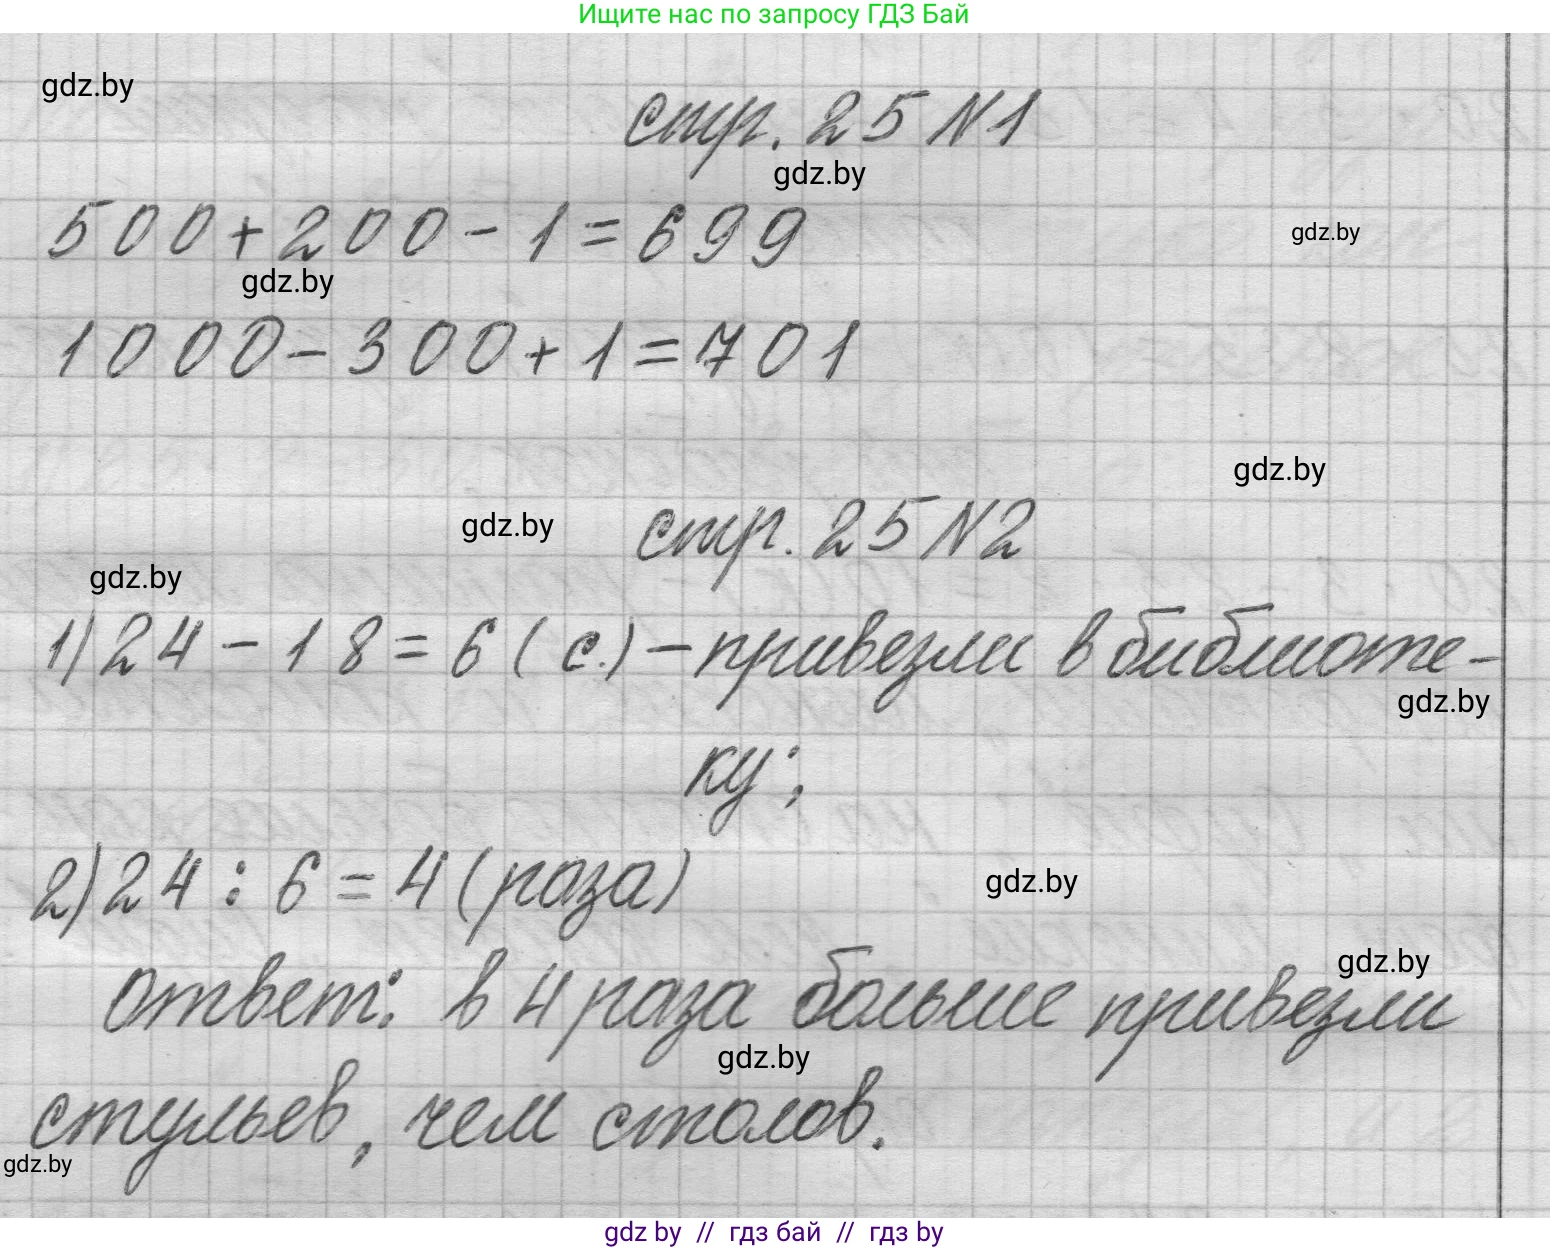 Ищите нас по запросу ГДЗ Бай
gdz.by
стр. 25 N1
gdz.by
500+200-1=699
gdz.by
gdz.by
1000-300+1=701
gdz.by
стр. 25 N2
gdz.by
gdz.by
1) 24-18=6 (с.) - привезли в библиоте-
gdz.by
ку;
2) 24:6=4 (раза)
gdz.by
gdz.by
Ответ: в 4 раза больше привезли
gdz.by
стульев, чем столов.
gdz.by
gdz by // гдз бай // гдз by